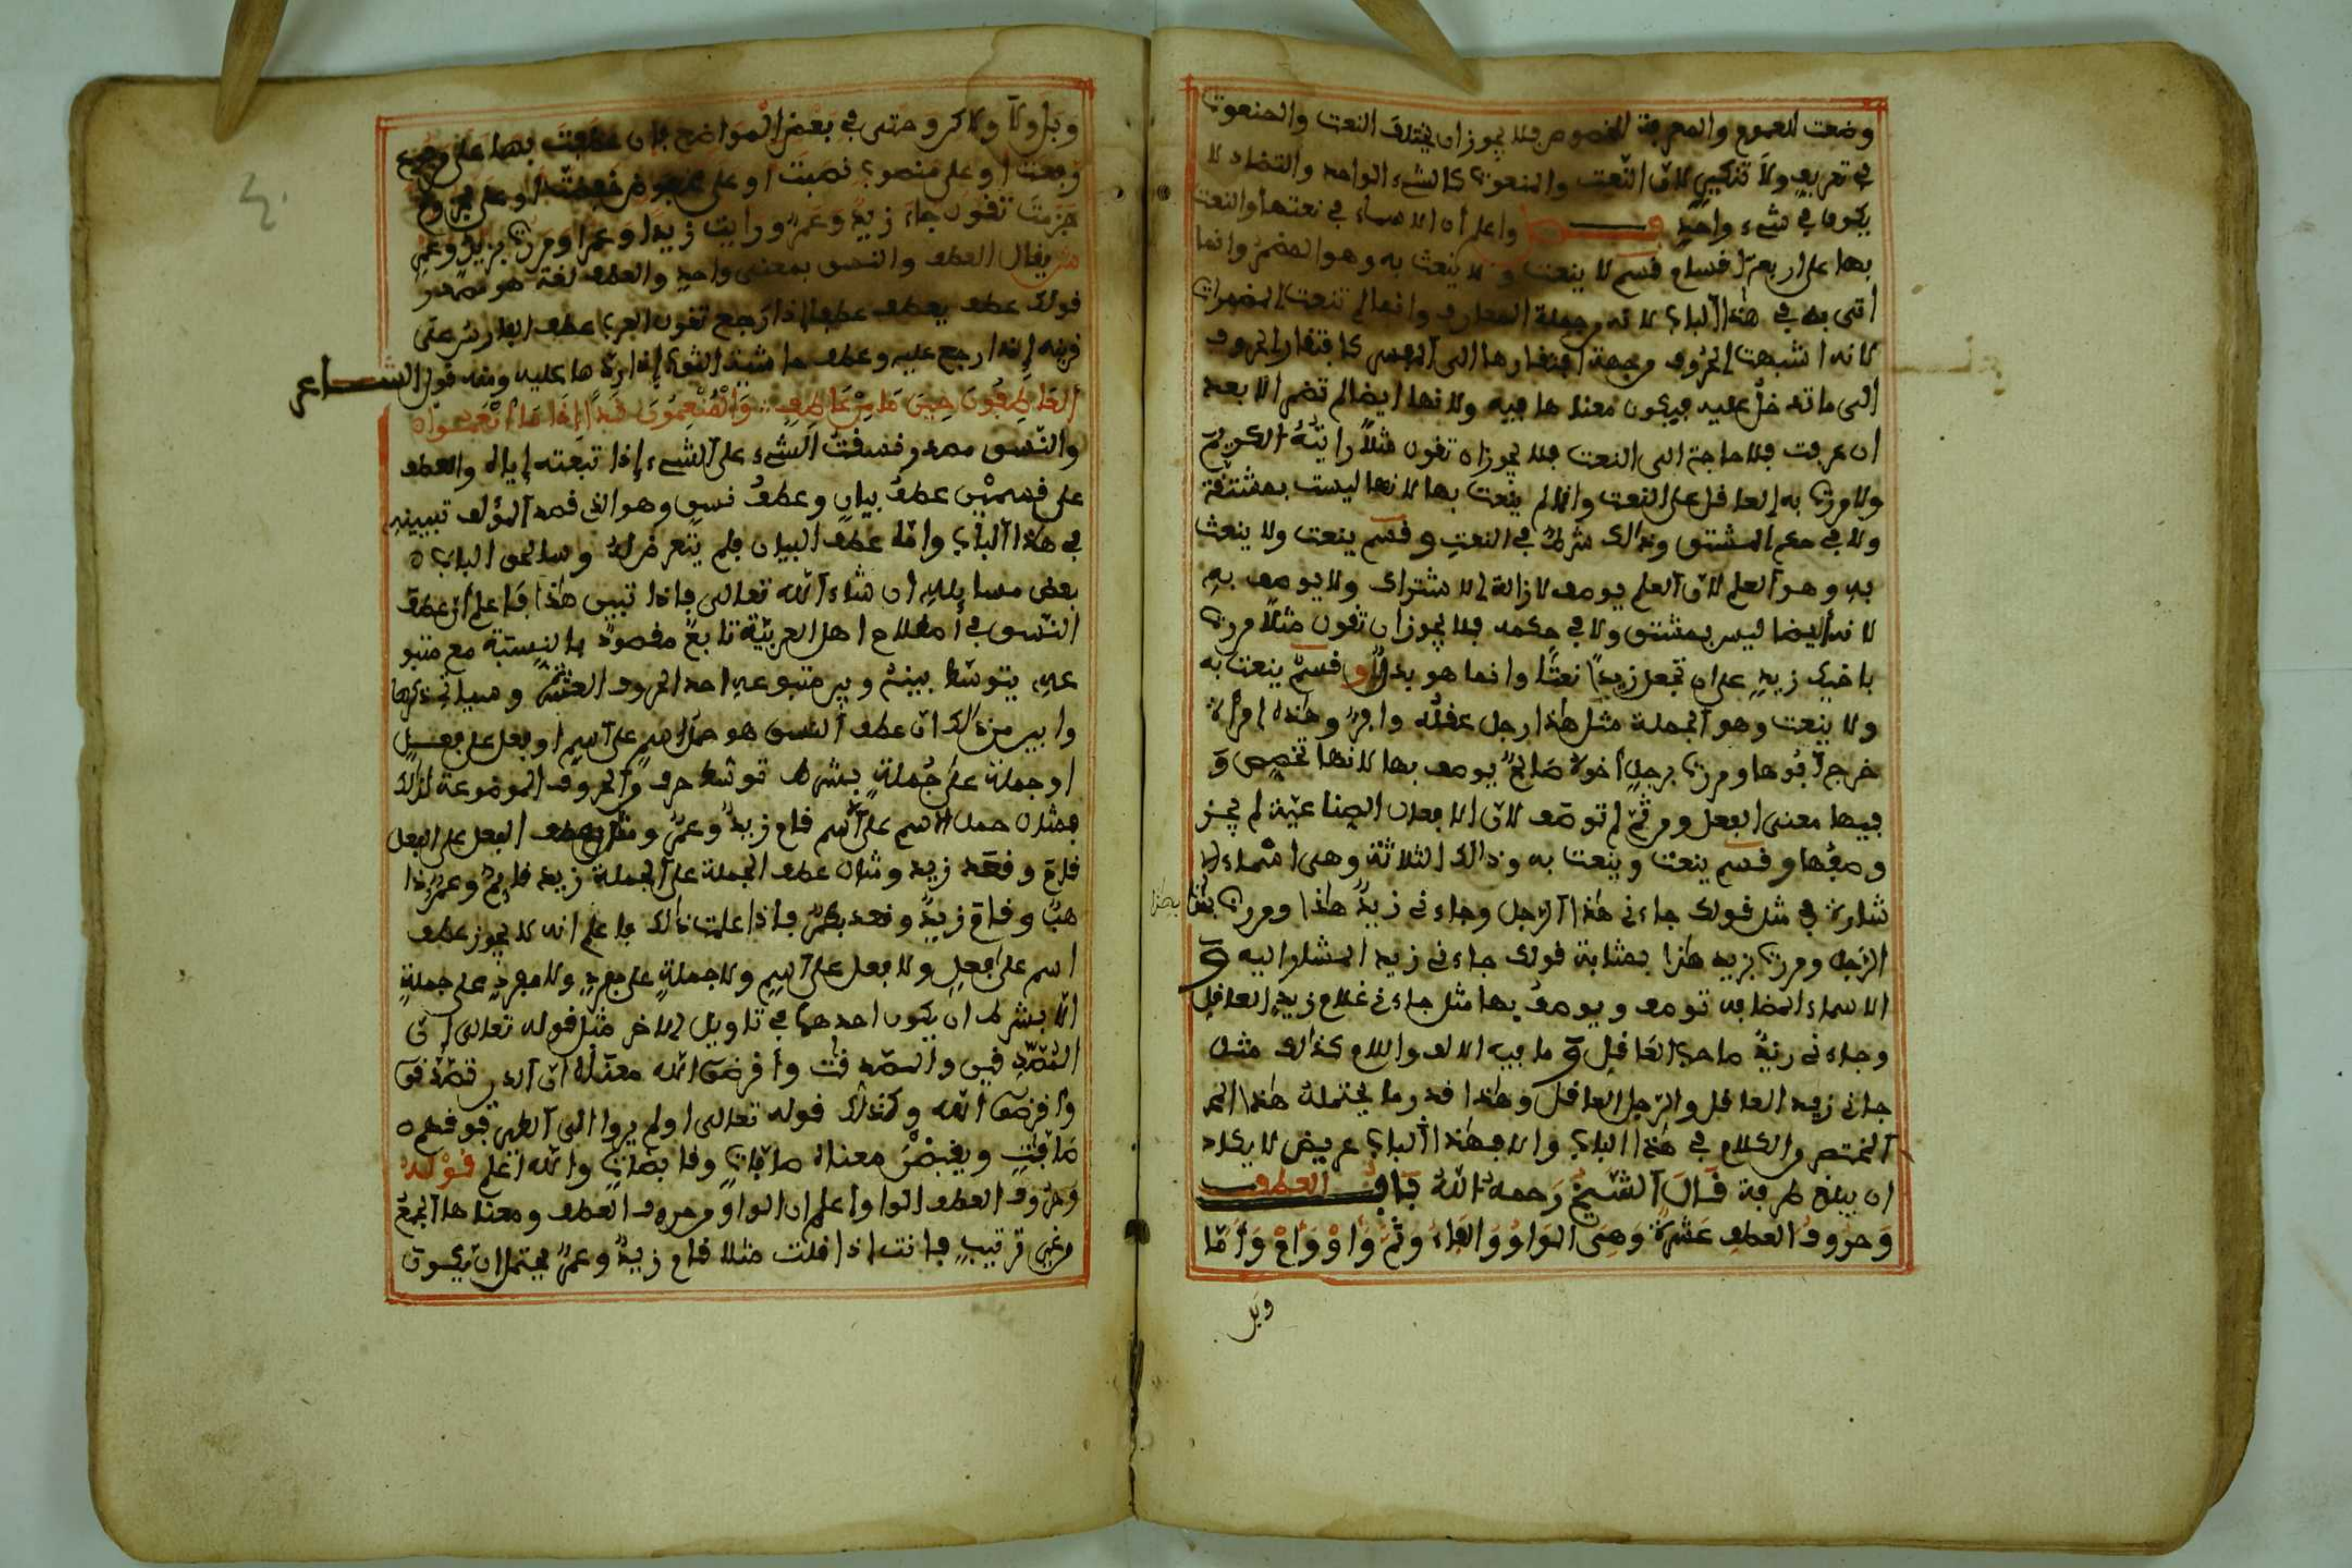 وضعت للعموم والمعرفة للخصوص فلا يجوز ان يختلف النعت والمنعوت
في تعريف ولا تنكير لان النعت والمنعوت كالشيء الواحد والتضاد لا
يكون في شيء واحد واعلم ان الاسماء في نعتها والنعت
بها على اربعة اقسام قسم لا ينعت ولا ينعت به وهو المضمر وانما
اتى به في هذا الباب لانه من جملة المعارف وانما لم تنعت المضمرات
لانه اشبهت الحروف من جهة افتقارها الى المفسر كافتقار الحروف
الى ما تدخل عليه فيكون معناها فيه ولانها ايضا لم تضمر الا بعد
ان عرفت فلا حاجة الى النعت فلا يجوز ان تقول مثلا رايته الكريم
ولا مررت به العاقل على النعت وانما لم ينعت بها لانها ليست بمشتقة
ولا في حكم المشتق وذالك شرط في النعت وقسم ينعت ولا ينعت
به وهو العلم لان العلم يوصف لازالة الاشتراك ولا يوصف به
لانه ايضا ليس بمشتق ولا في حكمه فلا يجوز ان تقول مثلا مررت
باخيك زيد على ان تجعل زيدا نعتا وانما هو بدل وقسم ينعت به
ولا ينعت وهو الجملة مثل هذا رجل عقله وافر وهذه امراة
خرج ابوها ومررت برجل اخوه صالح يوصف بها لانها تخصص و
فيها معنى الفعل ومن ثم لم توصف لان الافعال الصناعية لم يجز
وصفها وقسم ينعت وينعت به وذالك الثلاثة وهي اسماء الا
شارة في مثل قولك جاءني هذا الرجل وجاءني زيد هذا ومررت بهذا
بهذا
الرجل ومررت بزيد هذا بمثابة قولك جاءني زيد المشار اليه و
الاسماء المضافة توصف ويوصف بها مثل جاءني غلام زيد العاقل
وجاءني زيد صاحب العاقل و ما فيه الالف واللام كذالك مثل
جاني زيد العاقل والرجل العاقل وهذا قدر ما يحتمله هذا
المختصر والكلام في هذا الباب والا فهذا الباب عريض لا يكاد
ان يبلغ طرفة قال الشيخ رحمه الله باب العطف
وحروف العطف عشرة وهي الواو والفاء وثم واو وام واما
وبل
وبل ولا ولاكن وحتى في بعض المواضع فان عطفت بها على مرفوع
رفعت او على منصوب نصبت او على مخفوض خفضت او على مجزوم
جزمت تقول جاء زيد وعمرو ورايت زيدا وعمرا ومررت بزيد وعمرو
يقال العطف والنسق بمعنى واحد والعطف لغة هو مصدر
قولك عطف يعطف عطفا اذا رجع تقول العرب عطف الفارس على
قرنه اذا رجع عليه وعطف حاشية الثوب اذا ردها عليه ومنه قول الشاعر
العاطفون حين ما من عاطف :: والمنعمون اذا ما انعموا
والنسق مصدر نسقت الشيء على الشيء اذا تبعته اياه والعطف
على قسمين عطف بيان وعطف نسق وهو الذي قصد المؤلف تبيينه
في هذا الباب واما عطف البيان فلم يتعرض له وسالحق الباب
بعض مسايله ان شاء الله تعالى فاذا تبين هذا فاعلم ان عطف
النسق في اصطلاح اهل العربية تابع مقصود بالنسبة مع متبو
عه يتوسط بينه وبين متبوعه احد الحروف العشرة وسياتي ذكرها
وابين من ذالك ان عطف النسق هو حمل اسم على اسم او فعل على فعل
او جملة على جملة بشرط توسط حرف من الحروف الموضوعة لذالك
فمثال حمل الاسم على الاسم قام زيد وعمرو ومثال عطف الفعل على الفعل
قام وقعد زيد ومثال عطف الجملة على الجملة زيد قايم وعمرو ذا
هب وقام زيد وقعد بكر فاذا علمت ذالك فاعلم انه لا يجوز عطف
اسم على فعل ولا فعل على اسم ولا جملة على مفرد ولا مفرد على جملة
الا بشرط ان يكون احدهما في تاويل الاخر مثل قوله تعالى ان
المصدقين والمصدقات واقرضوا الله معناه ان الذين تصدقوا
واقرضوا الله وكذالك قوله تعالى اولم يروا الى الطير فوقهم
صافات ويقبضن معناه صافات وقابضات والله اعلم قوله
وحروف العطف الواو اعلم ان الواو من حروف العطف ومعناها الجمع
من غير ترتيب فانت اذا قلت مثلا قام زيد وعمرو يحتمل ان يكون